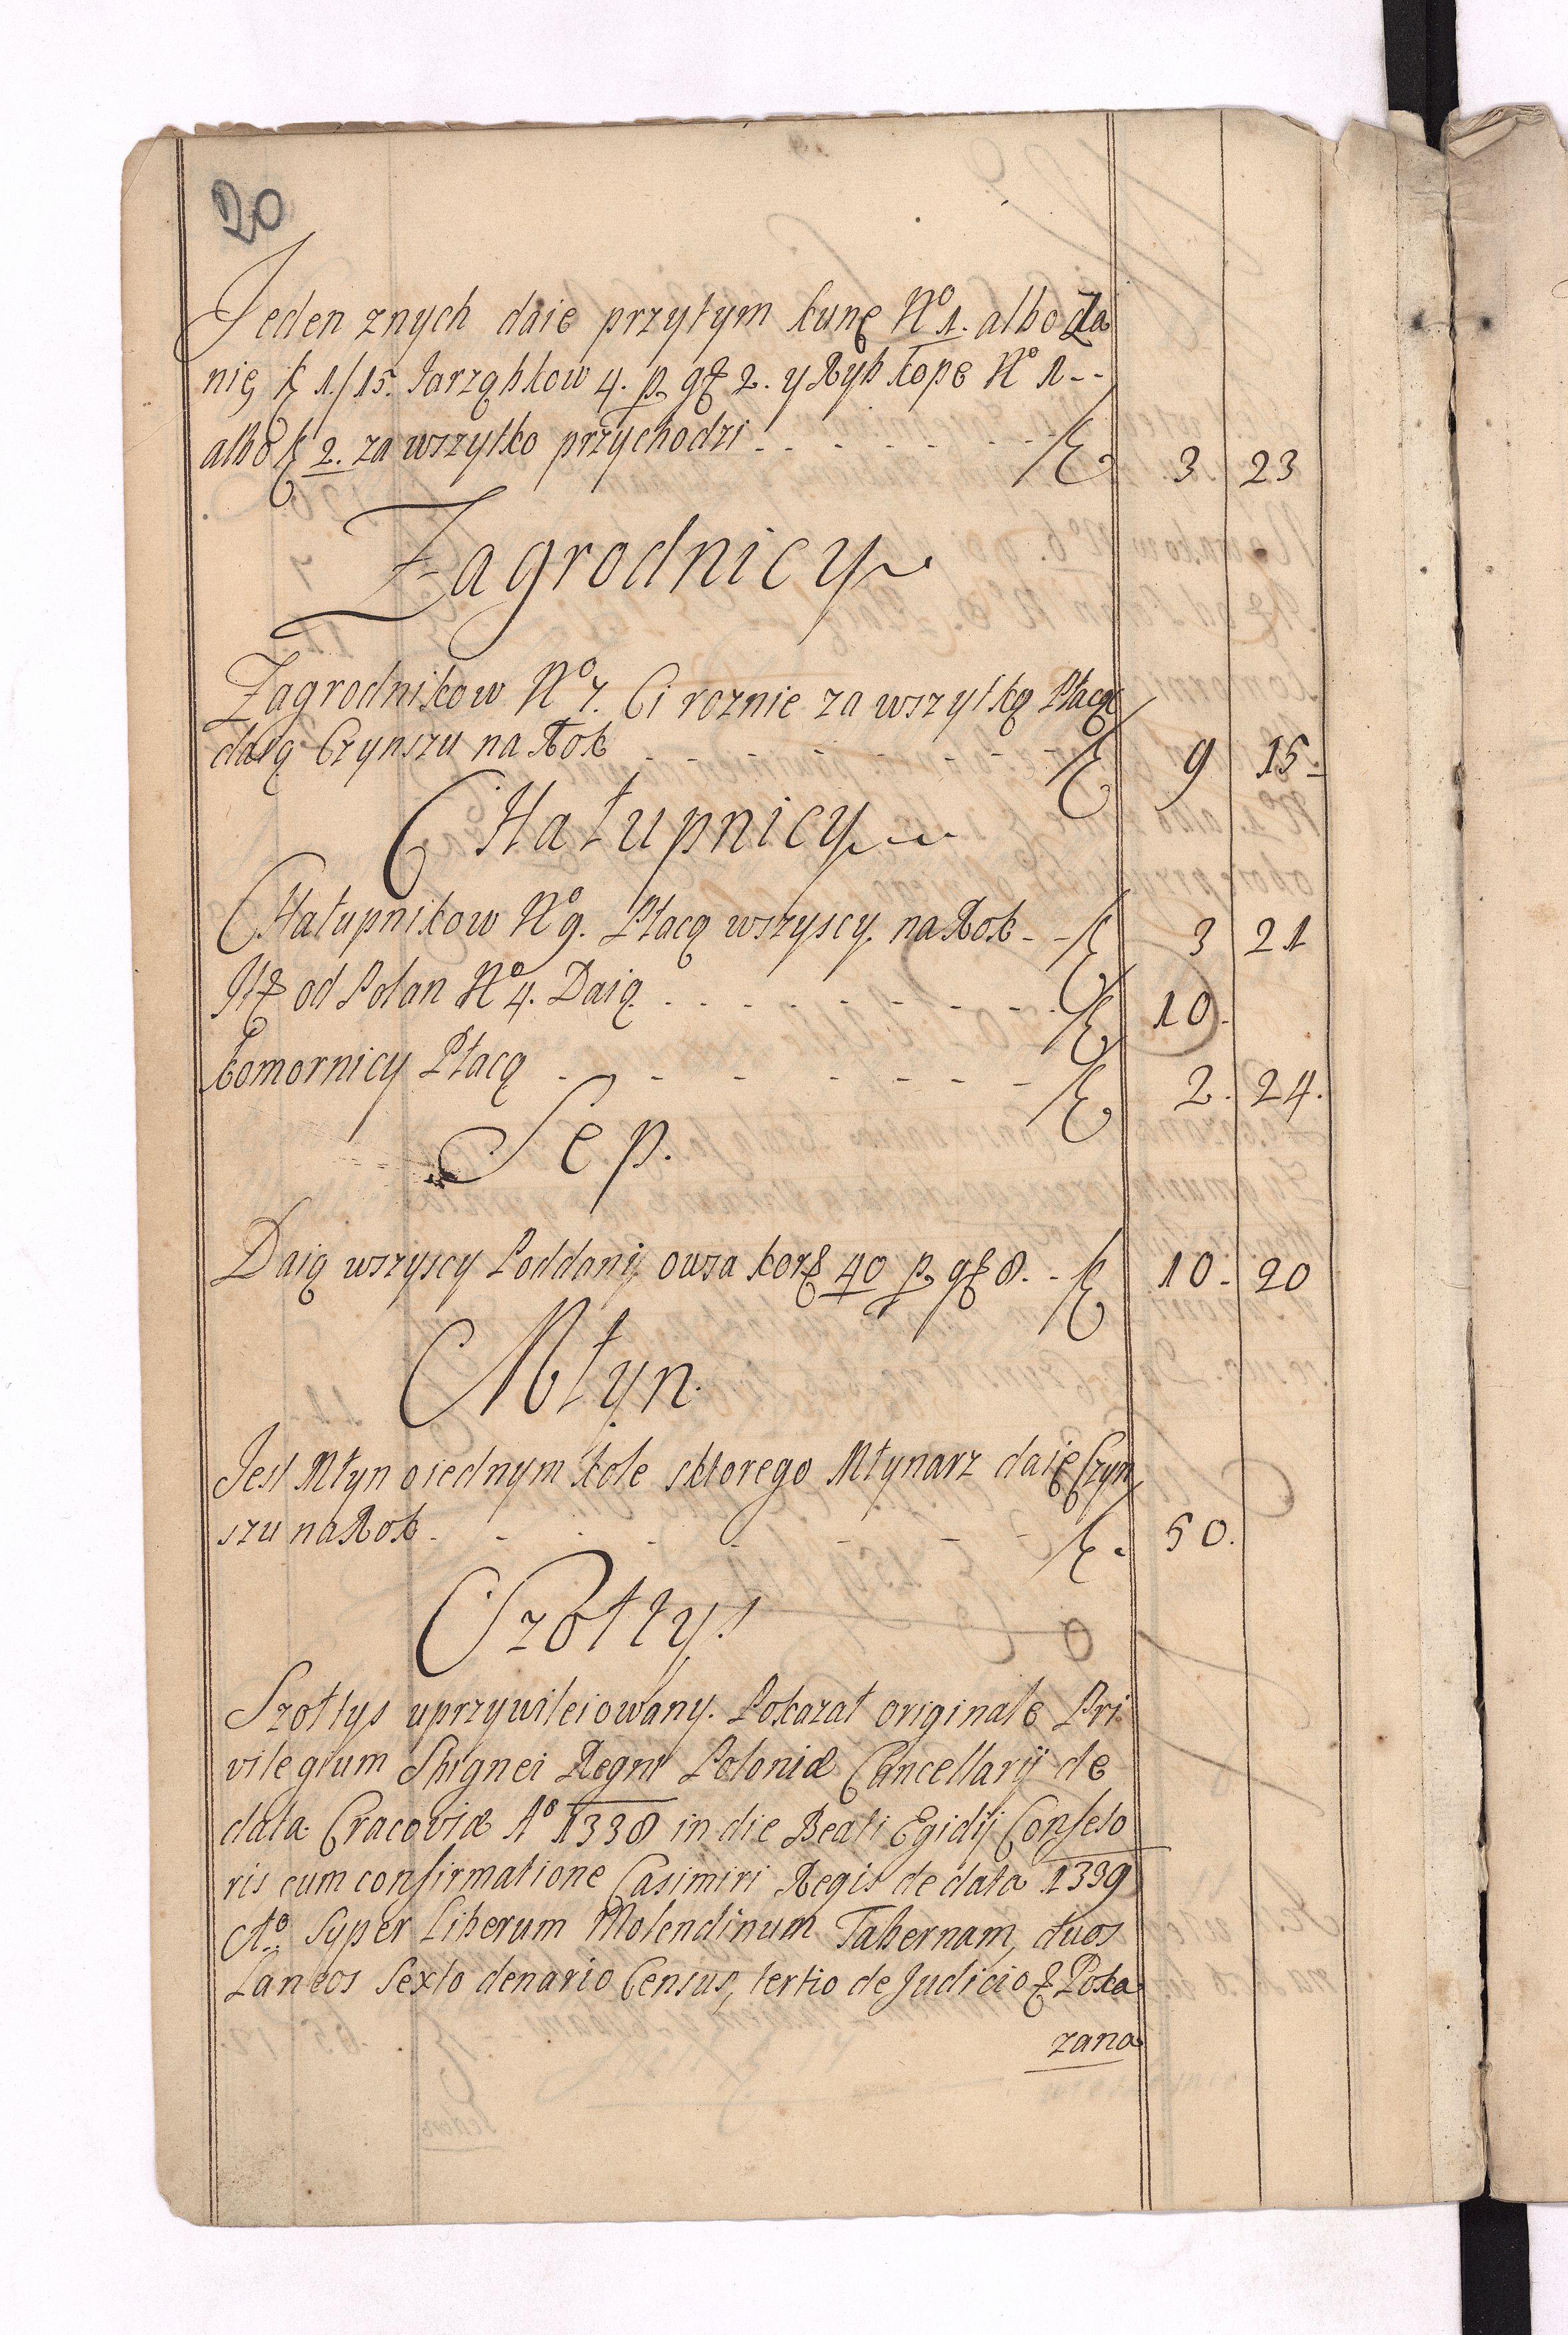 20
Jeden znych daie przytym kunę No 1. albo za
nię f 1/15. Jarząbkow 4. p. gr 2. y Ryb kopę No 1 - -
albo f 2. za wszytko przychodzi - - - - - - f 3 23
Zagrodnicy
Zagrodnikow No 7. Ci roznie za wszytkę Płacę
daią Czynszu na Rok - - - - - - f 9 15 -
CHałupnicy
CHałupnikow No 9. Płacą wszyscy na Rok - - f 3 21
It od Polan No 4. Daią - - - - - - f 10.
Komornicy Płacą - - - - - - f 2. 24.
Sep.
Daią wszyscy Poddani owsa kor 40 p. gr 8. - f 10. 20
Młyn.
Jest Młyn o iednym kole sktorego Młynarz daie Czyn
szu na Rok - - - - - - f. 50.
Szołtys
Szołtys uprzywileiowany. Pokazał originale Pri
vilegium Sbignei Regni Poloniæ Cancellarij de
data Cracoviæ Ao 1338 in die Beati Egidij Confeso
ris cum confirmatione Casimiri Regis de data 1339
Ao. Syper Liberum Molendinum Tabernam, duos
Laneos Sexto denario Census, tertio de Judicio & Poka
zana